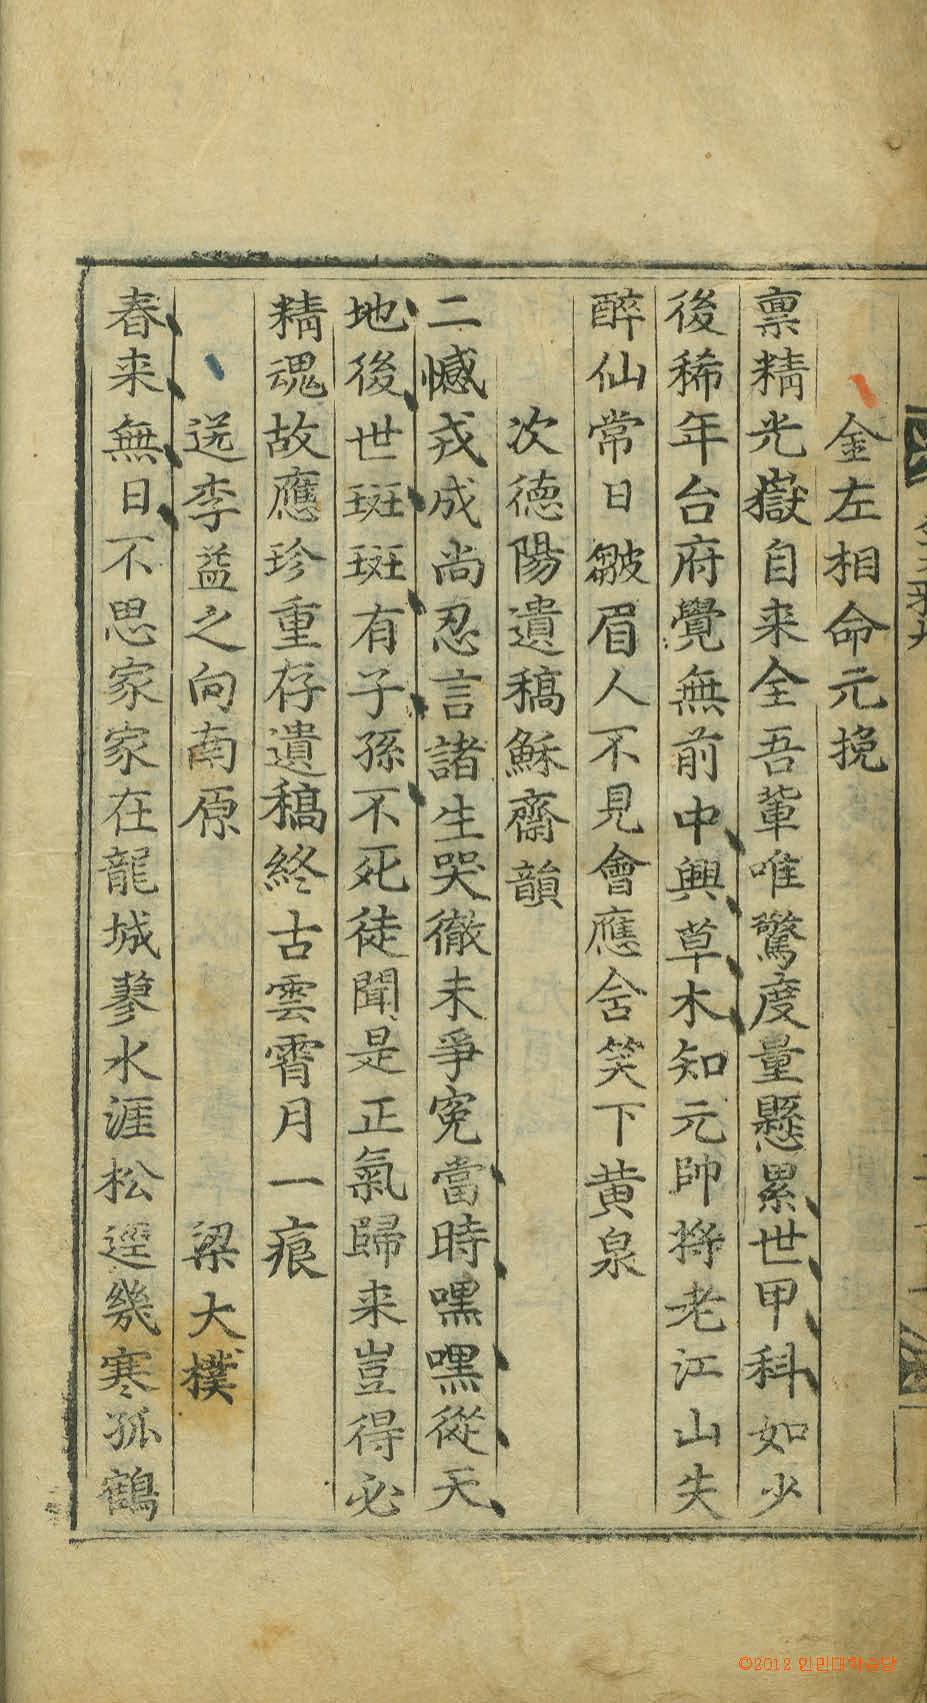 金左相命元挽
禀精光嶽自来全吾輩唯驚度量懸累世甲科如少
後稀年台府覺無前中興草木知元帥將老江山失
醉仙常日皺眉人不見會應含笑下黄泉
次德陽遺稿穌齋韻
二憾戎成尚忍言諸生哭徹未爭寃當時嘿嘿從天
地後世斑斑有子孫不死徒聞是正氣歸来豈得必
精魂故應珍重存遺稿終古雲霄月一痕
送李益之向南原 梁大樸
春来無日不思家家在龍城蓼水涯松逕幾寒孤鶴
©2012 인민대학습당